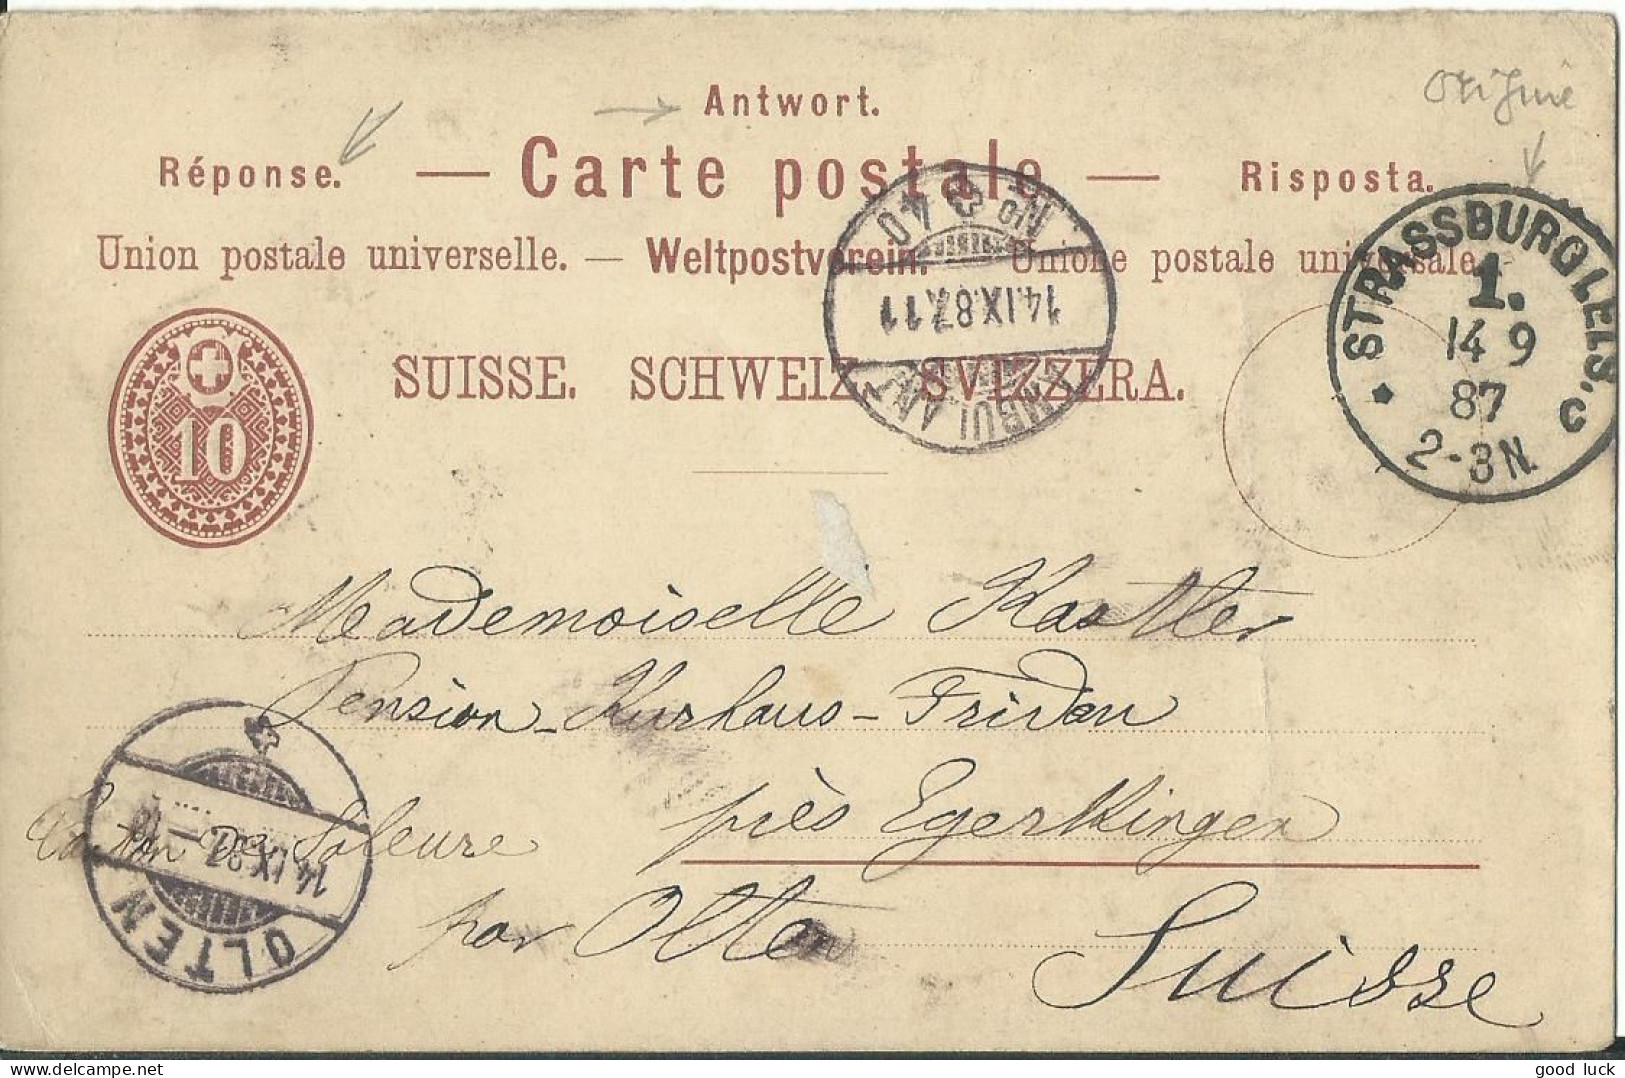 Origine
Antwort.
Réponse. — Carte postale — Risposta.
Union postale universelle. — Weltpostverein. — Unione postale universale.
SUISSE. SCHWEIZ. SVIZZERA.
10
STRASSBURG i. ELS. c
1.
14 9
87
2-3N.
AMBULANT
14.IX.87.11
No 40
Mademoiselle Kastler
Pension-Kurhaus-Fridau
près Egerkingen
Canton de Soleure
par Olten
Suisse
OLTEN
14.IX.87.—
good luck